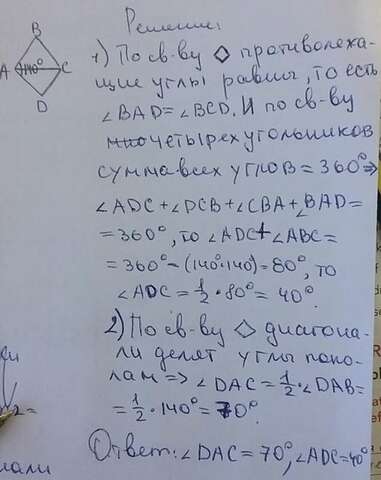 Решение:
B
A 140° C
D
1) По св-ву ◇ противолежа-
щие углы равны, то есть
∠BAD=∠BCD. И по св-ву
четырехугольников
сумма всех углов = 360° ⇒
∠ADC+∠DCB+∠CBA+∠BAD=
=360°, то ∠ADC+∠ABC=
=360°-(140°·140)=80°, то
∠ADC=1/2·80°=40°.
2) По св-ву ◇ диагона-
ли делят углы попо-
лам ⇒ ∠DAC=1/2·∠DAB=
=1/2·140°=70°.
Ответ: ∠DAC=70°, ∠ADC=40°